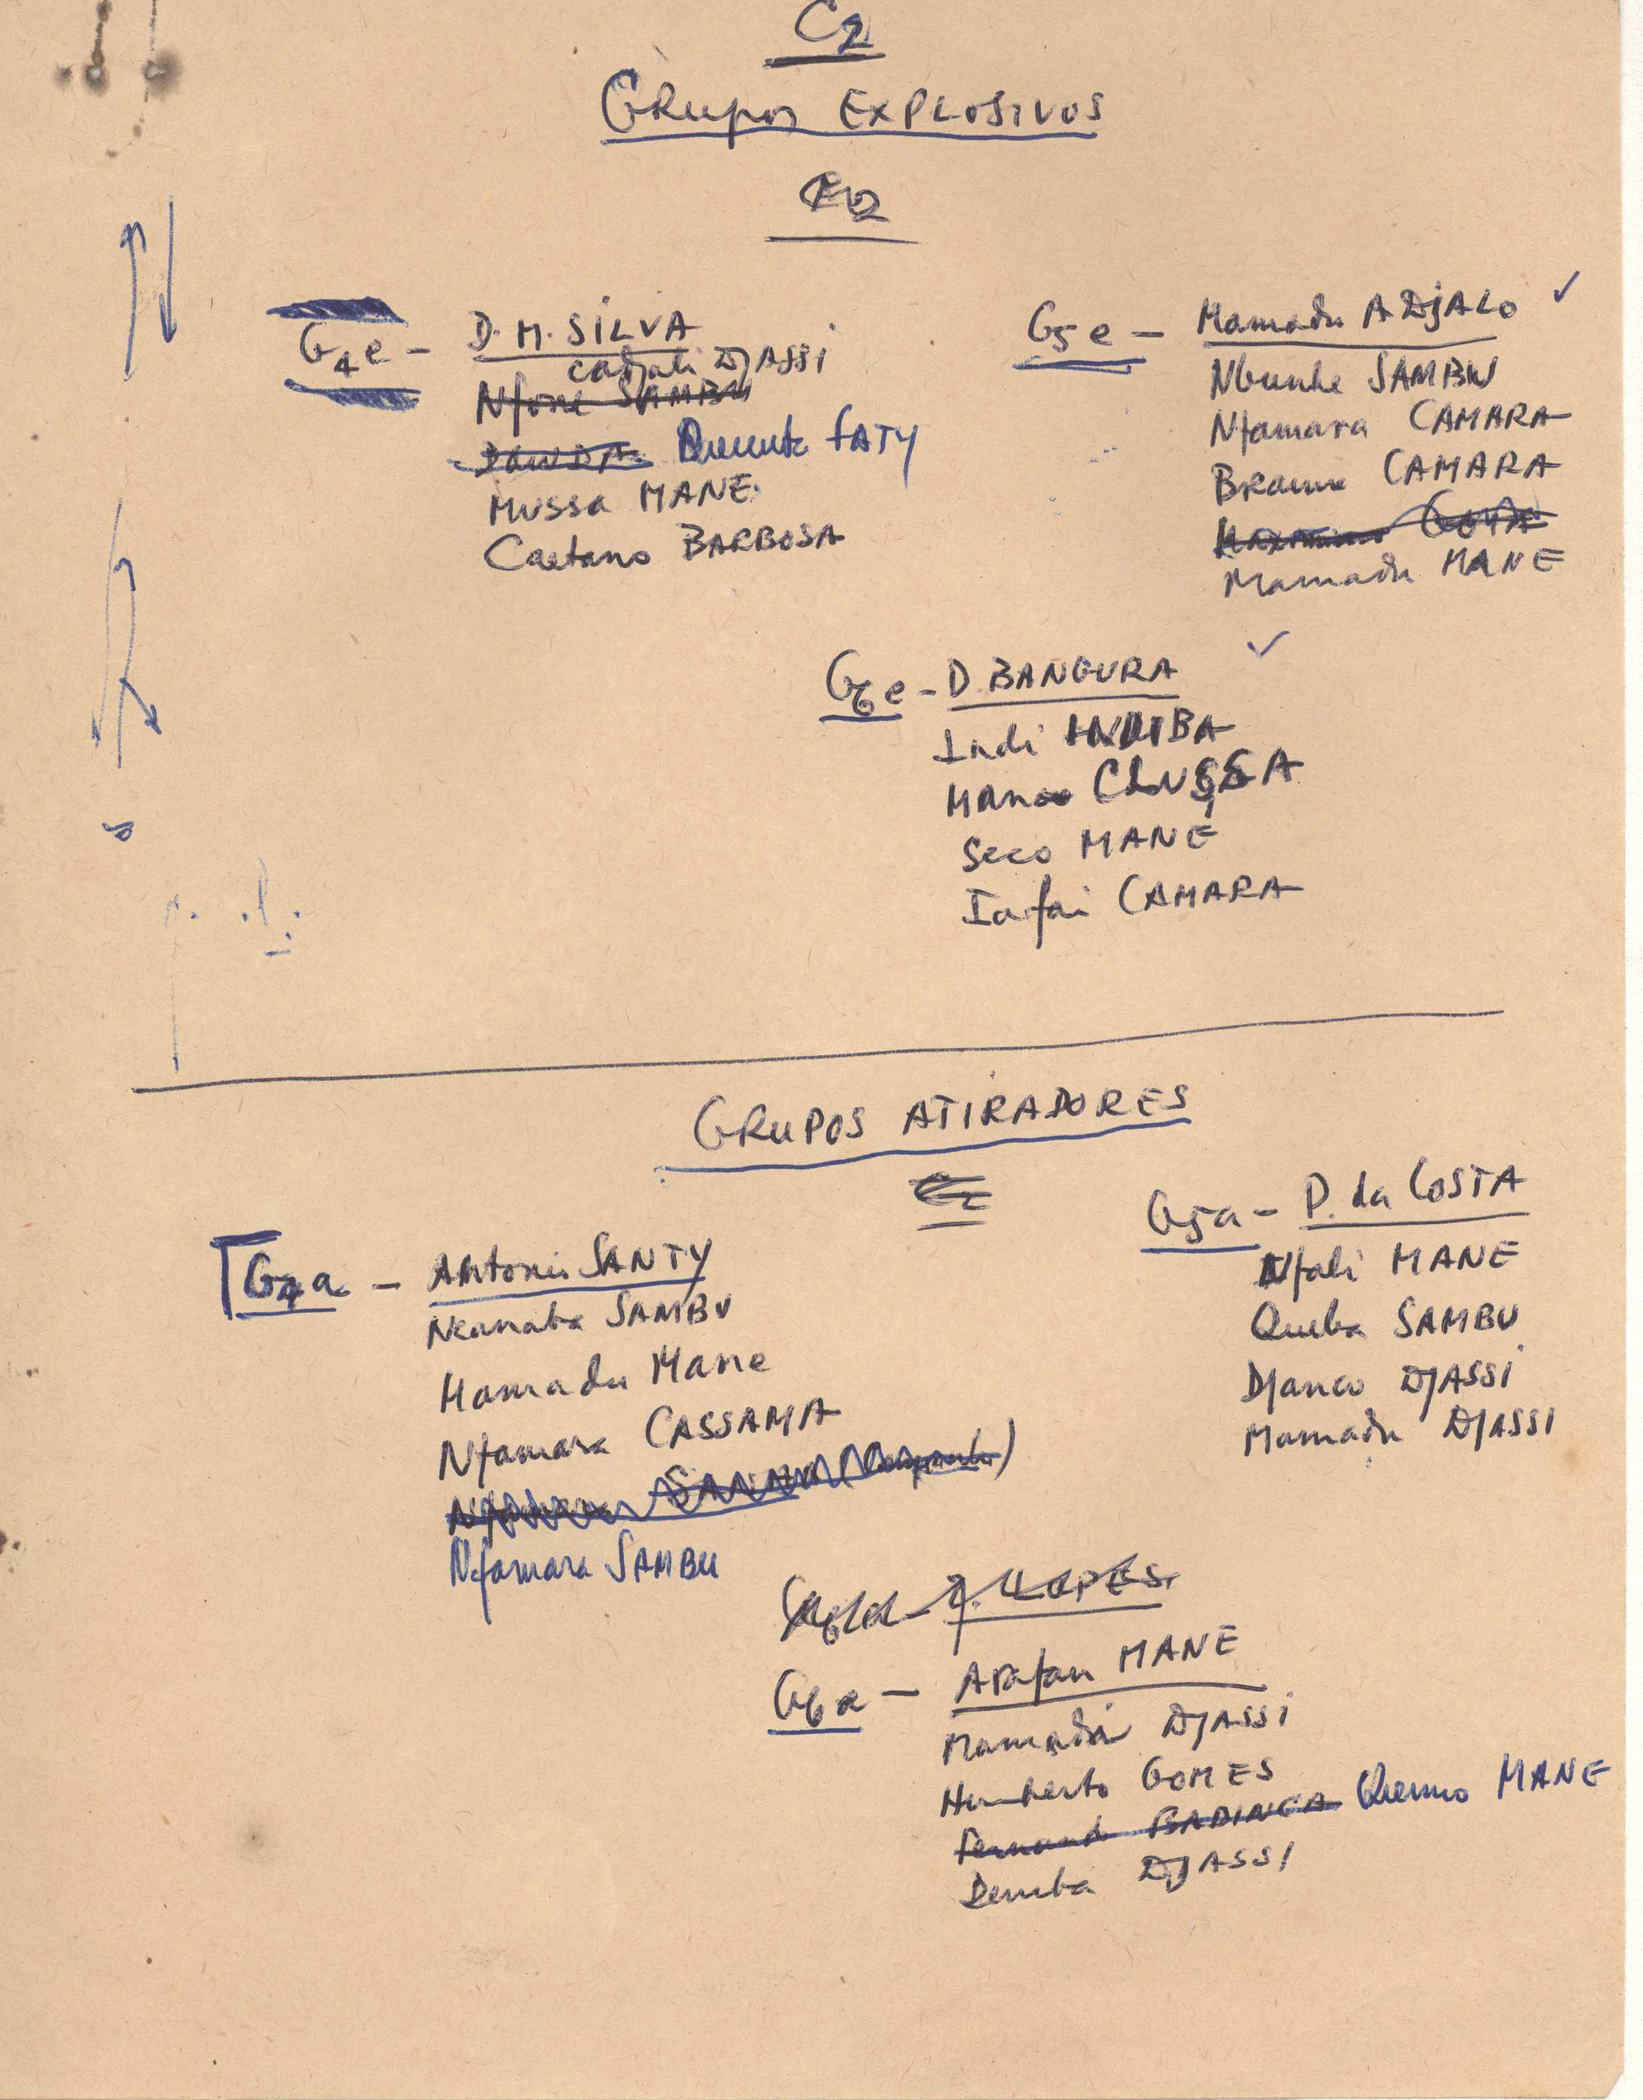 C2
GRupos EXPLOSIVOS
G4e - D. M. SILVA
Cadjali DJASSI
Nfone SAMBU
Queuta FATY
Mussa MANE
Caetano BARBOSA
G5e - Mamadu A DJALO ✓
SAMBU
Nfamara CAMARA
Braima CAMARA
Mamadu MANE
G6e - D. BANGURA ✓
Indi
Seco MANE
Iafai CAMARA
GRUPOS ATIRADORES
G4a - Antonio SANTY
SAMBU
Mamadu Mane
Nfamara CASSAMA
Nfamara SAMBU
G5a - P. da COSTA
Nfali MANE
Queba SAMBU
Djanco DJASSI
Mamadu DJASSI
LOPES
G6a - Arafan MANE
Mamadu DJASSI
Humberto GOMES
Fernando BADINCA Quemo MANE
Demba DJASSI